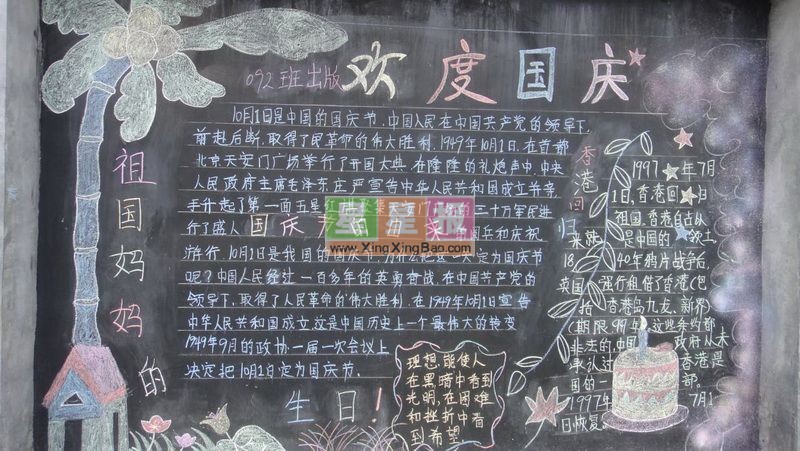 092班出版
欢度国庆
祖国妈妈的
生日!
10月1日是中国的国庆节.中国人民在中国共产党的领导下,
前赴后断,取得了民革命的伟大胜利.1949年10月1日,在首都
北京天安门广场举行了开国大典,在隆隆的礼炮声中,中央
人民政府主席毛泽东庄严宣告中华人民共和国成立并亲
手升起了第一面五星红旗聚集天安门
三十万军民进
行了盛大
国庆节的
年和庆祝
游行.10月1日是我国的国庆
定为国庆节
呢?中国人民经过一百多年的英勇奋战,在中国共产党的
领导下,取得了人民革命的伟大胜利.在1949年10月1日宣告
中华人民共和国成立这是中国历史上一个最伟大的转变
1949年9月的政协一届一次会议上
决定把10月1日定为国庆节.
星星报
www.XingXingBao.com
理想能使人
在黑暗中看到
光明,在困难
和挫折中看
到希望.
香港回归
1997年7月
1日,香港回
日
祖国.香港自古从
来就是中国的领土,
18
40年鸦片战争后,
英国强行租借了香港(包
括香港岛九龙、新界)
(期限99年
这些条约都
非法的.中国
政府从未
承认过
香港是
国的一
部.
1997年
7月1
日恢复